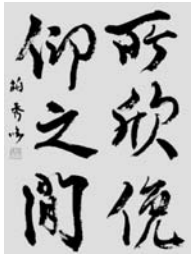 所欣俛
仰之間